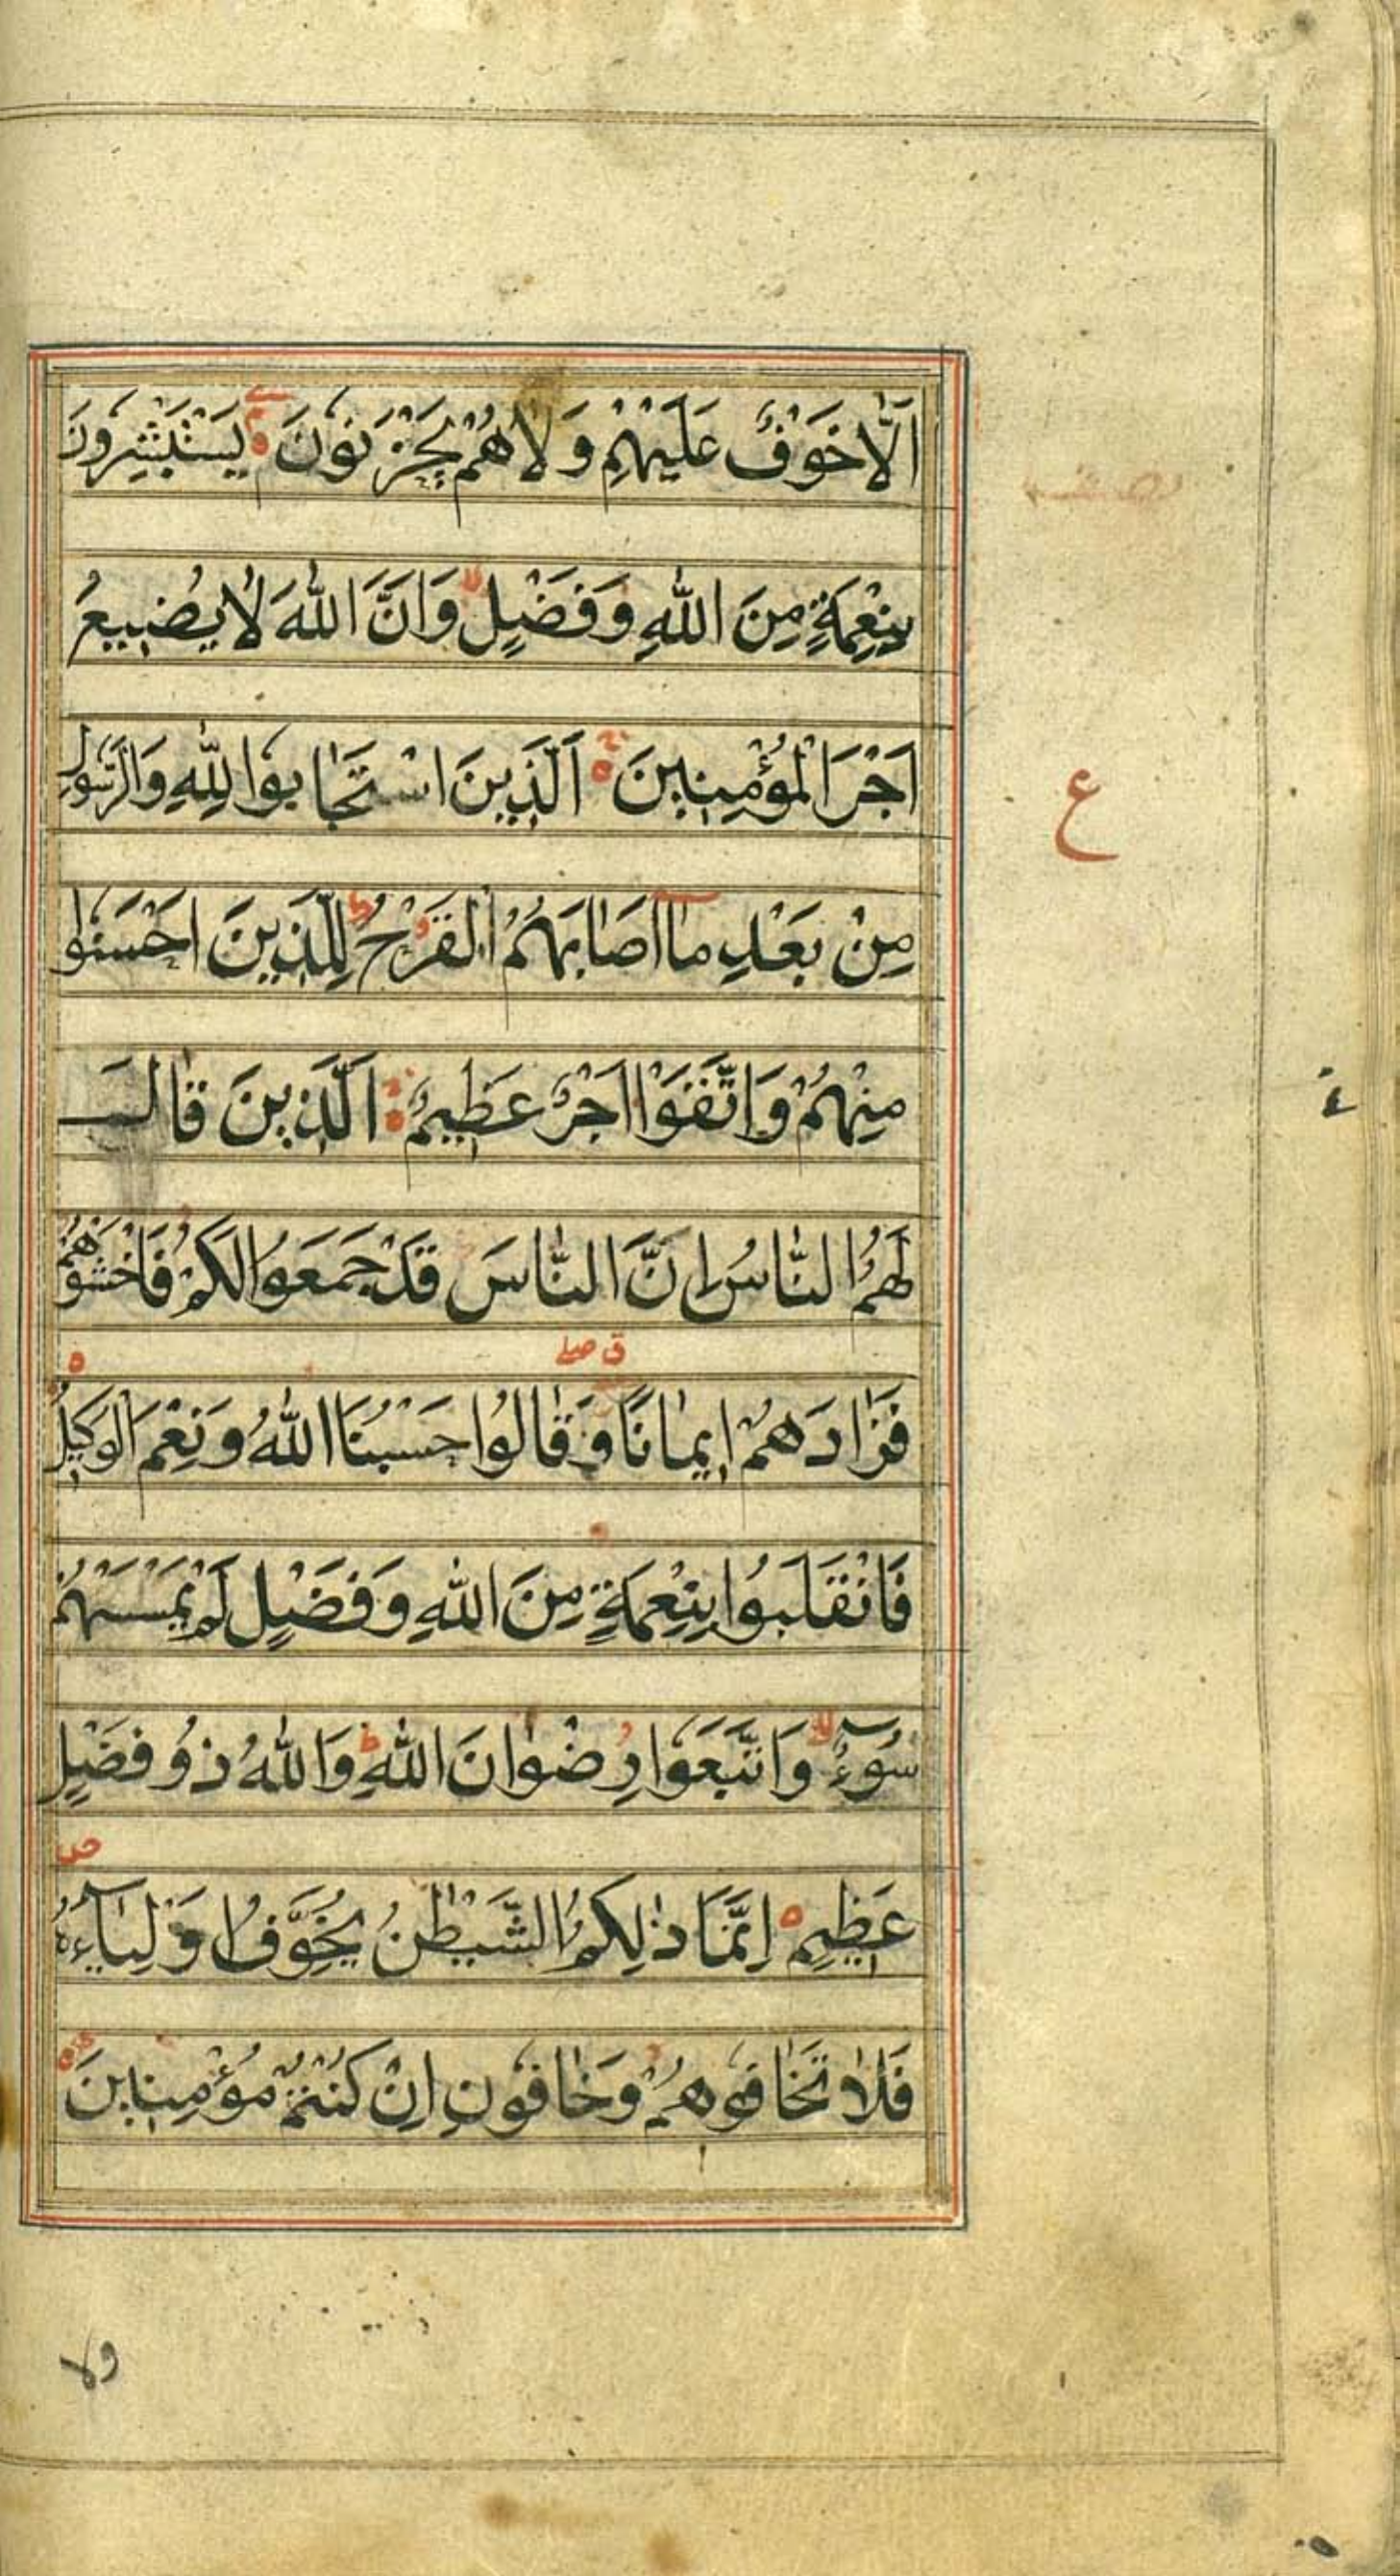 اَلَّا خَوْفٌ عَلَيْهِمْ وَلَا هُمْ يَحْزَنُونَ يَسْتَبْشِرُونَ
بِنِعْمَةٍ مِنَ اللّٰهِ وَفَضْلٍ لا وَاَنَّ اللّٰهَ لَا يُضِيعُ
اَجْرَ الْمُؤْمِنِينَ اَلَّذِينَ اسْتَجَابُوا لِلّٰهِ وَالرَّسُولِ
ع
مِنْ بَعْدِ مَآ اَصَابَهُمُ الْقَرْحُ ط لِلَّذِينَ اَحْسَنُوا
مِنْهُمْ وَاتَّقَوْا اَجْرٌ عَظِيمٌ اَلَّذِينَ قَالَ
لَهُمُ النَّاسُ اِنَّ النَّاسَ قَدْ جَمَعُوا لَكُمْ فَاخْشَوْهُمْ
ق صلے
فَزَادَهُمْ اِيمَانًا وَقَالُوا حَسْبُنَا اللّٰهُ وَنِعْمَ الْوَكِيلُ
فَانْقَلَبُوا بِنِعْمَةٍ مِنَ اللّٰهِ وَفَضْلٍ لَمْ يَمْسَسْهُمْ
سُوٓءٌ لا وَاتَّبَعُوا رِضْوَانَ اللّٰهِ ط وَاللّٰهُ ذُو فَضْلٍ
ص
عَظِيمٍ اِنَّمَا ذٰلِكُمُ الشَّيْطٰنُ يُخَوِّفُ اَوْلِيَآءَهُ
فَلَا تَخَافُوهُمْ وَخَافُونِ اِنْ كُنْتُمْ مُؤْمِنِينَ
ولا